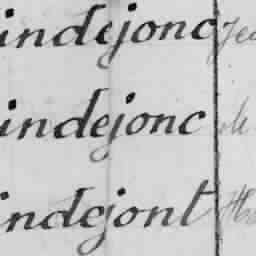 indejonc
indejonc
indejont